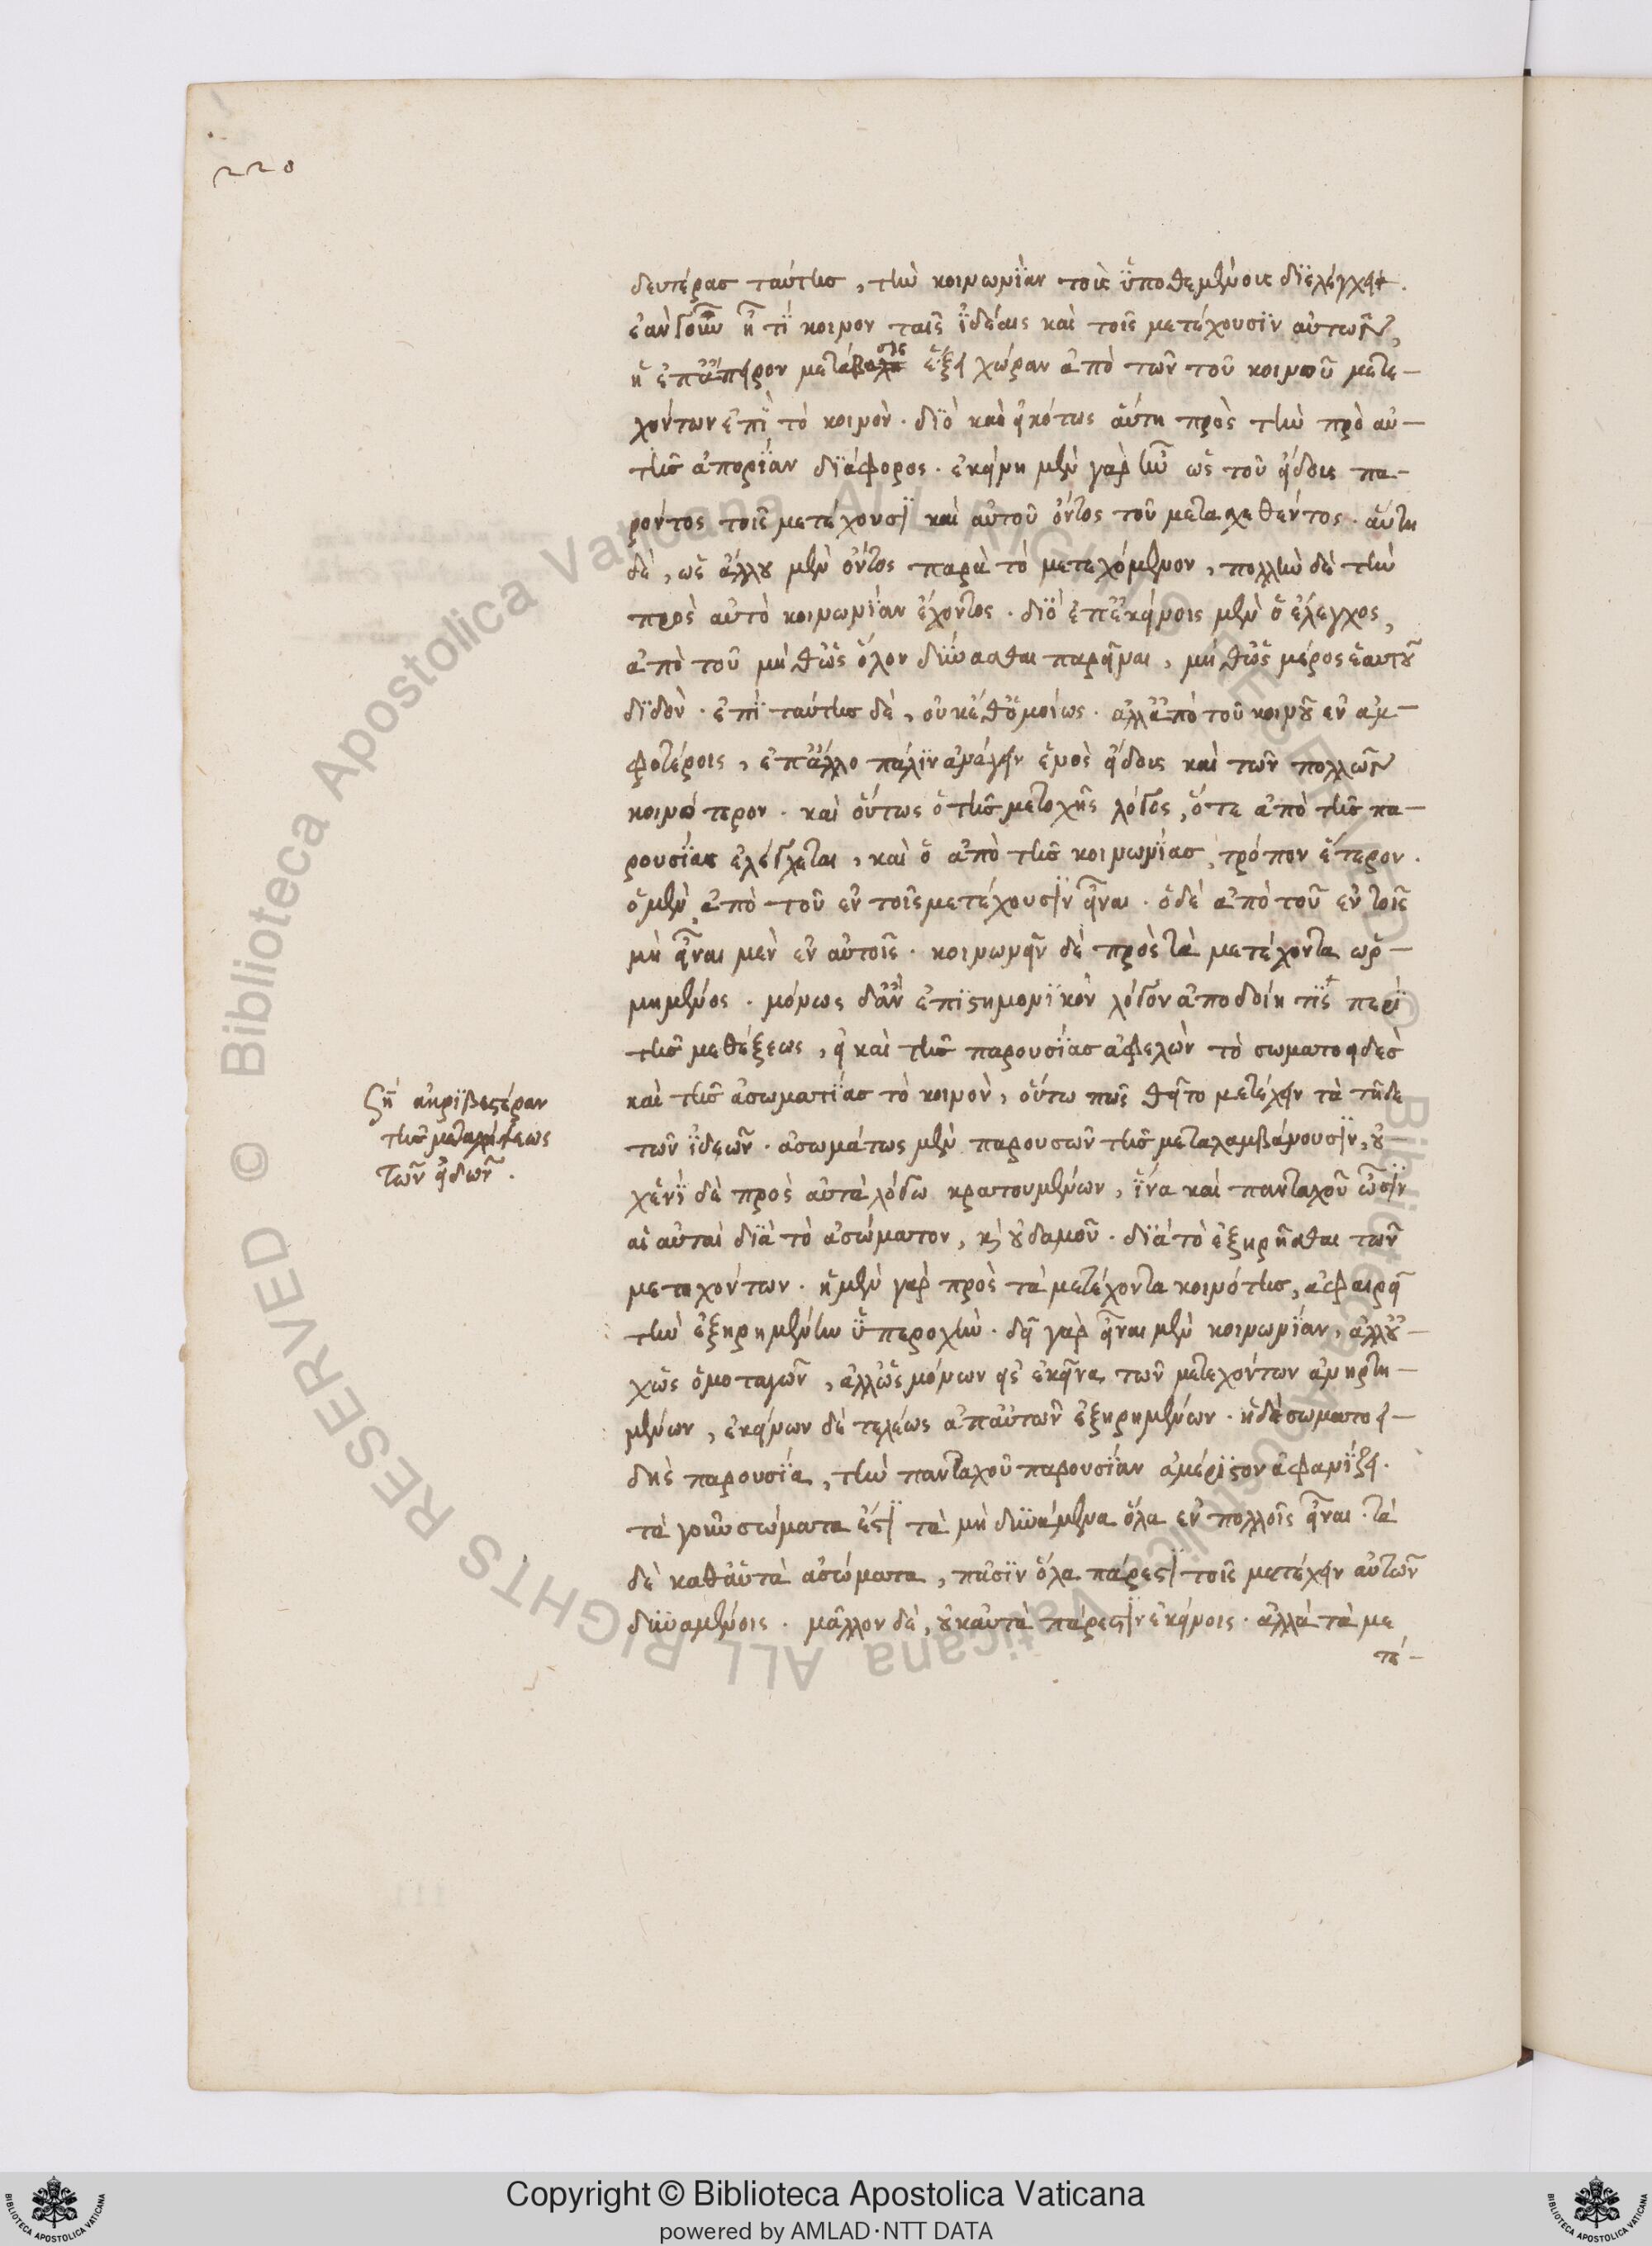 220
δευτέρας ταύτης, τὴν κοινωνίαν τοῖς ὑποθεμένοις διελέγχει.
ἐὰν γοῦν ᾖ τί κοινὸν ταῖς ἰδέαις καὶ τοῖς μετέχουσιν αὐτῶν,
ἡ ἐπάπειρον μετάβασις ἕξει χώραν ἀπὸ τῶν τοῦ κοινοῦ μετε-
χόντων ἐπὶ τὸ κοινόν. διὸ καὶ εἰκότως αὕτη πρὸς τὴν πρὸ αὐ-
τῆς ἀπορίαν διάφορος. ἐκείνη μὲν γὰρ ἦν ὡς τοῦ εἴδους πα-
ρόντος τοῖς μετέχουσι καὶ αὐτοῦ ὄντος τοῦ μεταληφθέντος. αὕτη
δὲ, ὡς ἄλλου μὲν ὄντος παρὰ τὸ μετεχόμενον, πολλὴν δὲ τὴν
πρὸς αὐτὸ κοινωνίαν ἔχοντος. διὸ ἐπ' ἐκείνοις μὲν ὁ ἔλεγχος,
ἀπὸ τοῦ μήθ' ὡς ὅλον δύνασθαι παρεῖναι, μήθ' ὡς μέρος ἑαυτοῦ
διδόν. ἐπὶ ταύτης δὲ, οὐκέθ' ὁμοίως. ἀλλ' ἀπὸ τοῦ κοινοῦ ἐν ἀμ-
φοτέροις, ἐπ' ἄλλο πάλιν ἀνάγειν ἑνὸς εἴδους καὶ τῶν πολλῶν
κοινότερον. καὶ οὕτως ὁ τῆς μετοχῆς λόγος, ὅτε ἀπὸ τῆς πα-
ρουσίας ἐλέγχεται, καὶ ὁ ἀπὸ τῆς κοινωνίας τρόπον ἕτερον.
ὁ μὲν ἀπὸ τοῦ ἐν τοῖς μετέχουσιν εἶναι. ὁ δὲ ἀπὸ τοῦ ἐν τοῖς
μὴ εἶναι μὲν ἐν αὐτοῖς. κοινωνεῖν δὲ πρὸς τὰ μετέχοντα ὡρ-
μημένος. μόνως δ' ἂν ἐπιστημονικὸν λόγον ἀποδοίη τὶς περὶ
τῆς μεθέξεως, εἰ καὶ τῆς παρουσίας ἀφελὼν τὸ σωματοειδὲς
καὶ τῆς ἀσωματίας τὸ κοινὸν, οὕτω πως θεῖτο μετέχειν τὰ τῇδε
τῶν ἰδεῶν. ἀσωμάτως μὲν παρουσῶν τῆς μεταλαμβάνουσιν, οὐ-
χ' ἑνὶ δὲ πρὸς αὐτὰ λόγω κρατουμένων, ἵνα καὶ πανταχοῦ ὦσιν
αἱ αὐταὶ διὰ τὸ ἀσώματον, καὶ οὐδαμοῦ. διὰ τὸ ἐξηρῆσθαι τῶν
μετεχόντων. ἡ μὲν γὰρ πρὸς τὰ μετέχοντα κοινότης, ἀφαιρεῖ
τὴν ἐξηρημένην ὑπεροχήν. δεῖ γὰρ εἶναι μὲν κοινωνίαν, ἀλλ' οὐ-
χ' ὡς ὁμοταγῶν, ἀλλ' ὡς μόνων εἰς ἐκεῖνα τῶν μετεχόντων ἀνηρτη-
μένων, ἐκείνων δὲ τελέως ἀπ' αὐτῶν ἐξηρημένων. ἡ δὲ σωματοει-
δὴς παρουσία, τὴν πανταχοῦ παρουσίαν ἀμέριστον ἀφανίζει.
τὰ γοῦν σώματα ἐστὶ τὰ μὴ δυνάμενα ὅλα ἐν πολλοῖς εἶναι. τὰ
δὲ καθ' αὑτὰ ἀσώματα, πᾶσιν ὅλα πάρεστι τοῖς μετέχειν αὐτῶν
δυναμένοις. μᾶλλον δὲ, οὐκ αὐτὰ πάρεστιν ἐκείνοις. ἀλλὰ τὰ με
τέ-
ζη ἀκριβεστέραν
τῆς μεταλήψεως
τῶν εἰδῶν.